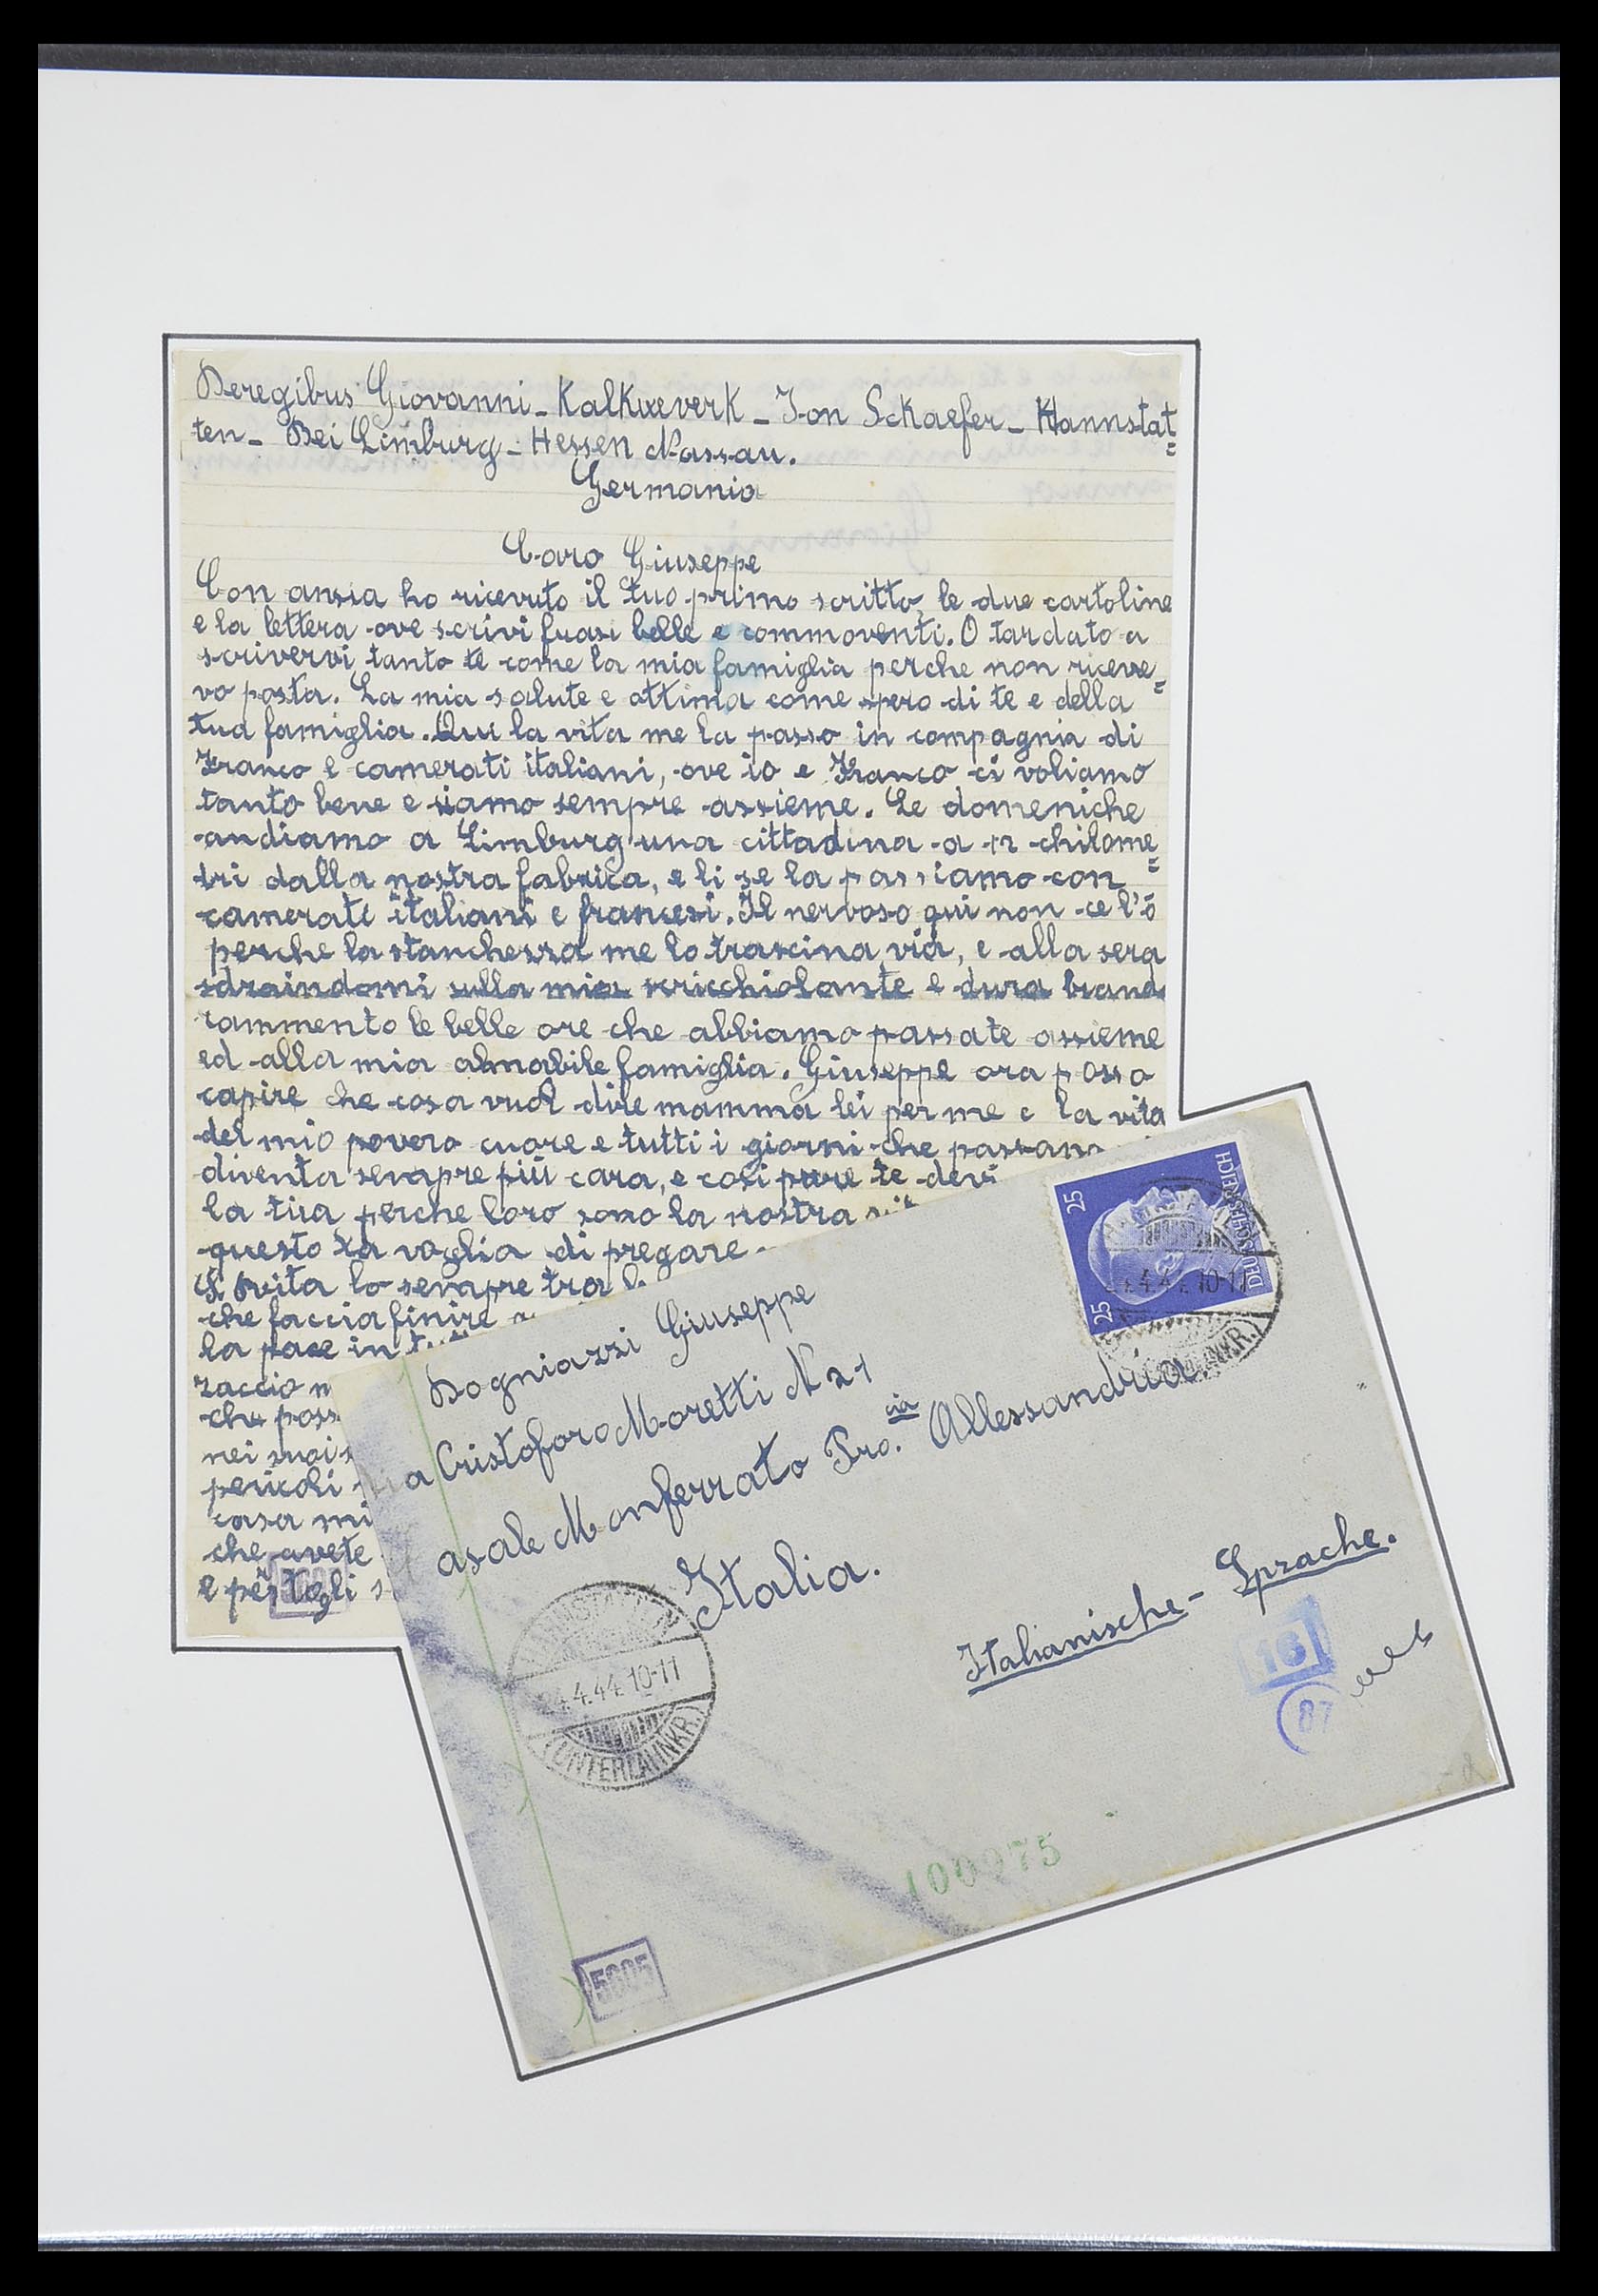 Deregibus Giovanni - Kalkwverk - Jon Sckaefer - Hannstat=
ten - Bei Limburg - Hessen Nassau.
Germania
Caro Giuseppe
Con ansia ho ricevuto il tuo primo scritto, le due cartoline
e la lettera ove scrivi frasi belle e commoventi. O tardato a
scrivervi tanto te come la mia famiglia perche non riceve=
vo posta. La mia salute e ottima come spero di te e della
tua famiglia. Qui la vita me la passo in compagnia di
Franco e camerati italiani, ove io e Franco ci voliamo
tanto bene e siamo sempre assieme. Le domeniche
andiamo a Limburg una cittadina a 12 chilome=
tri dalla nostra fabrica, e li se la passiamo con
camerati italiani e francesi. Il nervoso qui non ce l'ò
perche la stanchezza me lo trascina via, e alla sera
sdraindomi sulla mia scricchiolante e dura brand
rammento le belle ore che abbiamo passate assieme
ed alla mia amabile famiglia. Giuseppe ora posso
capire che cosa vuol dire mamma lei per me e la vita
del mio povero cuore e tutti i giorni che passano
diventa sempre più cara, e cosi pure te devi
la tua perche loro sono la nostra
questo la voglia di pregare
S. Rita lo sempre tra le
che faccia finire
la pace in
raccio
che poss
nei suoi
pericoli
casa mi
che avete
e per togli s
25
25
DEUTSCHES REICH
4.4 10-11
Dogniazzi Giuseppe
a Cristoforo Moretti N 21
asale Monferrato Pro.cia Allessandria
Italia.
Italianische - Sprache.
4.4.44. 10-11
(UNTERLAHNKR.)
16
87
100975
5605